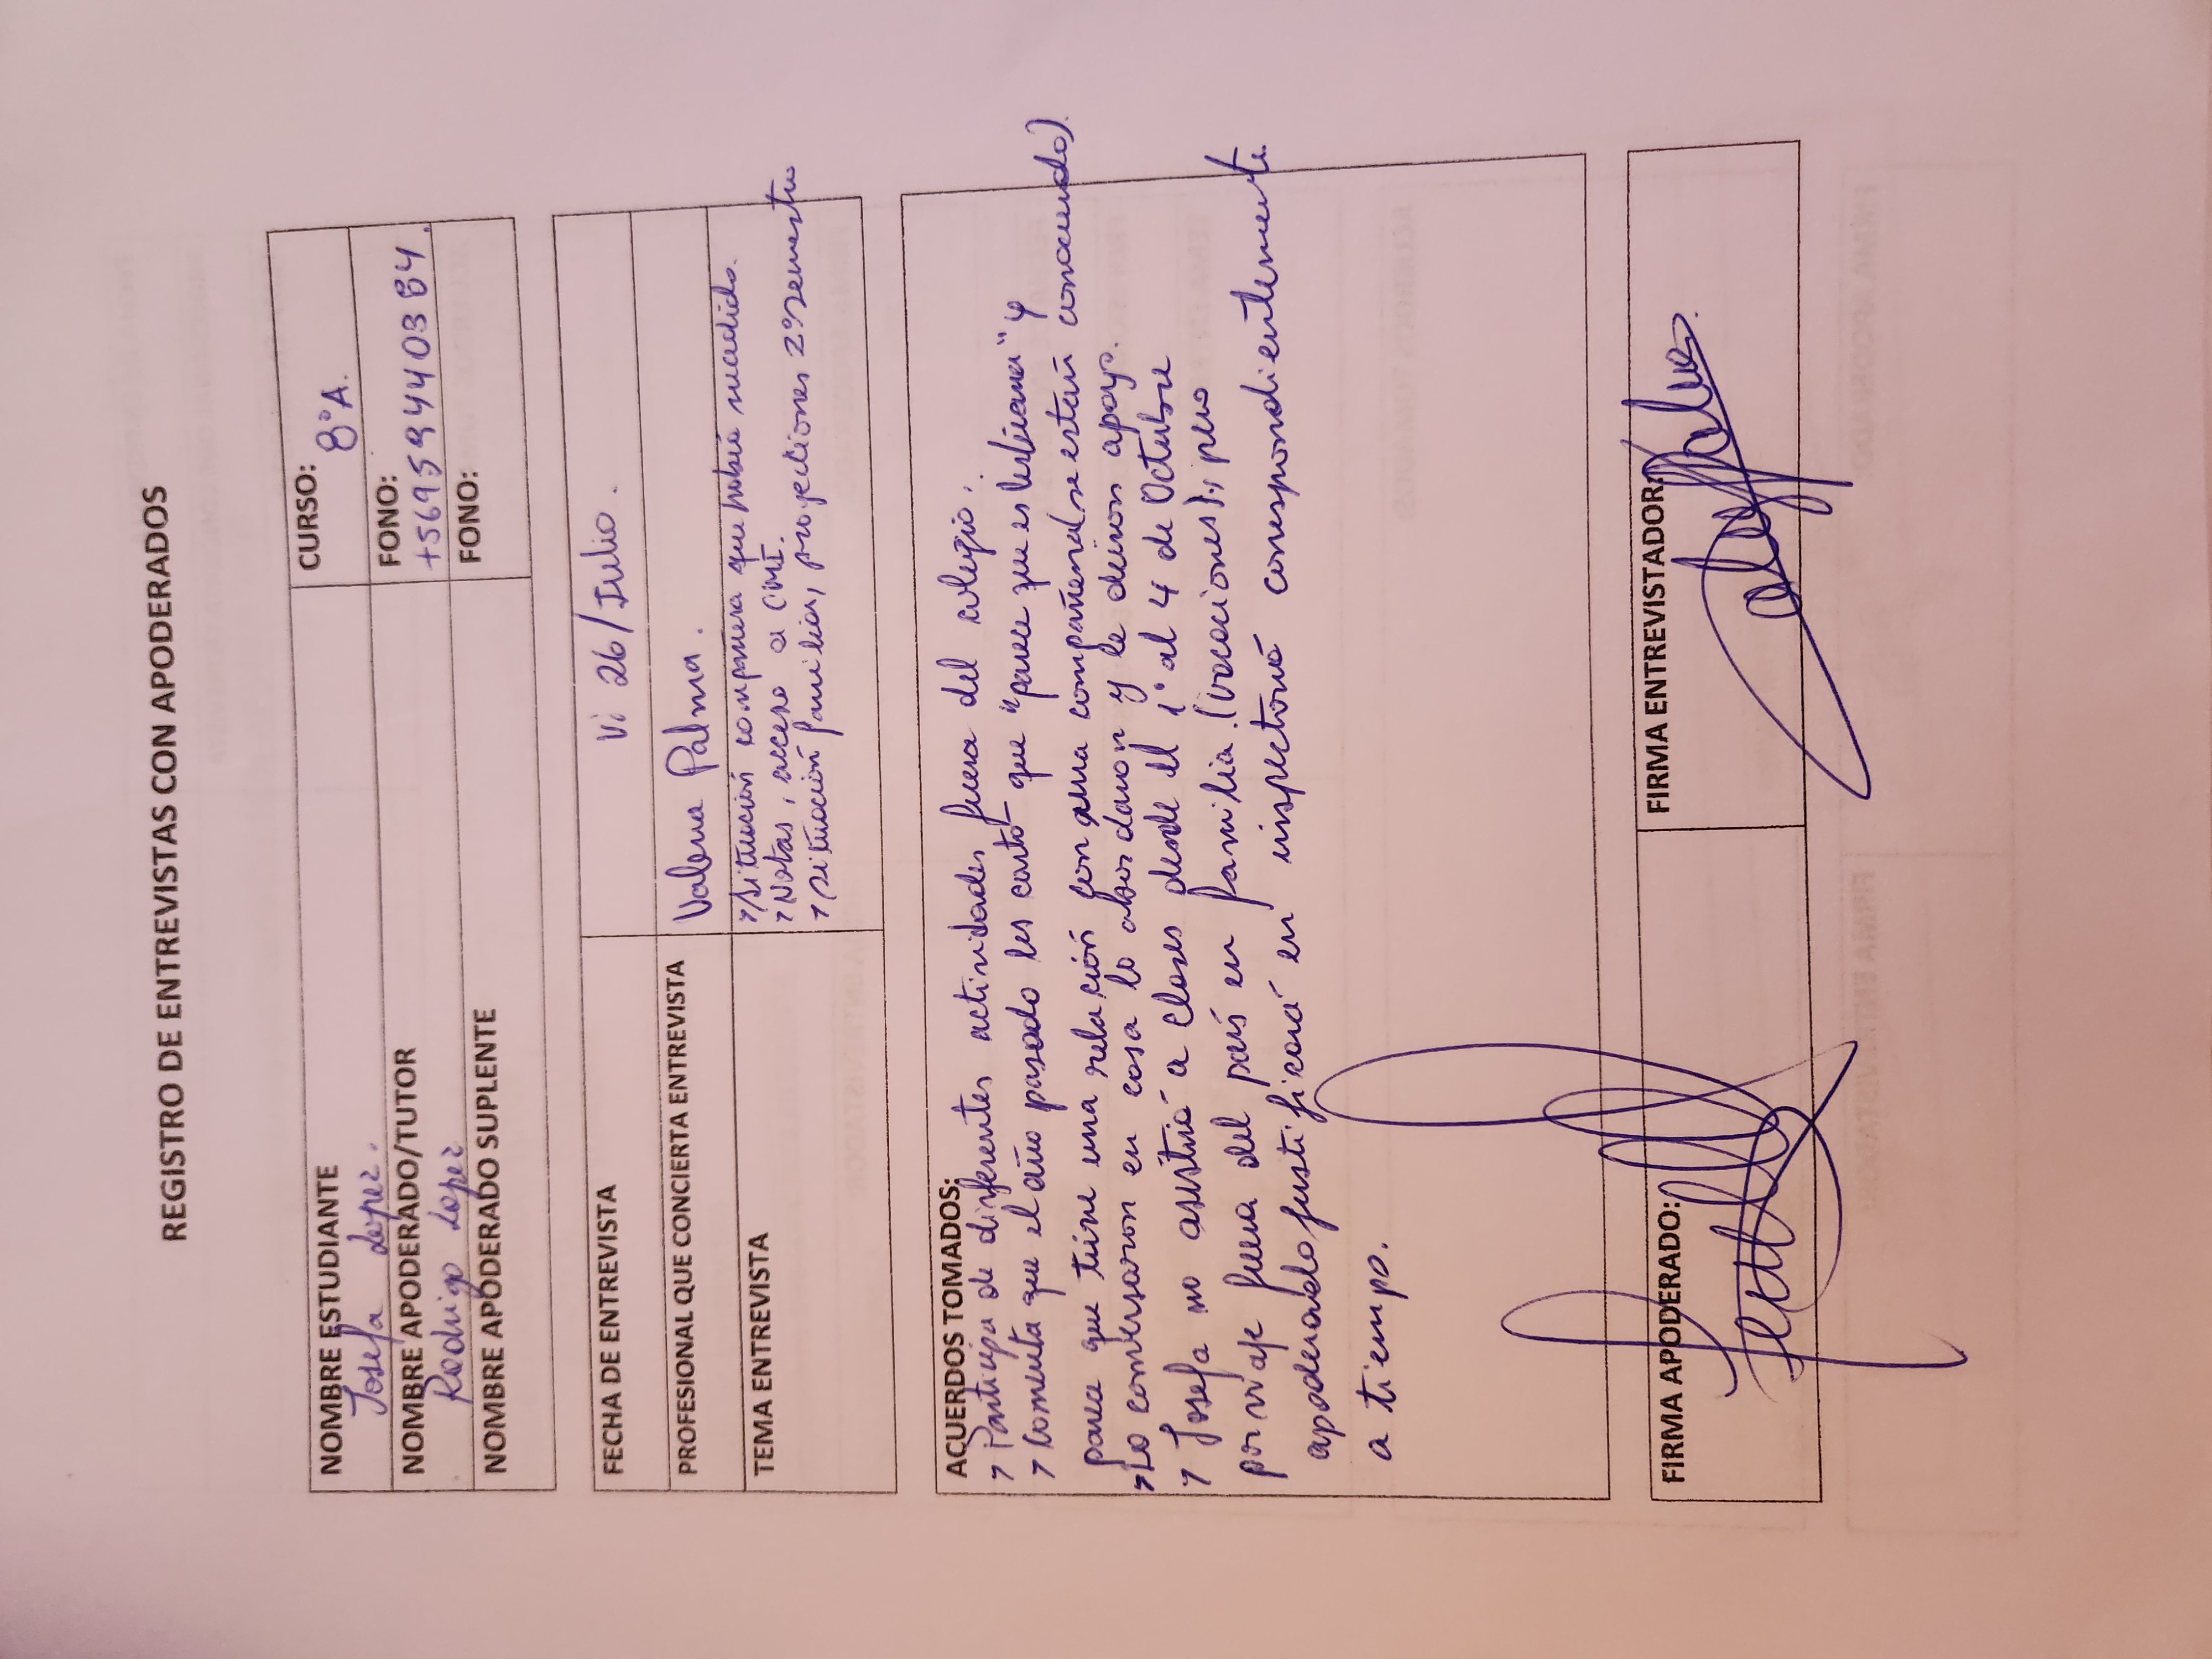 REGISTRO DE ENTREVISTAS CON APODERADOS
NOMBRE ESTUDIANTE
Josefa Lopez.
CURSO:
8°A.
NOMBRE APODERADO/TUTOR
Rodrigo Lopez
FONO:
+56959440384.
NOMBRE APODERADO SUPLENTE
FONO:
FECHA DE ENTREVISTA
Vi 26/Julio.
PROFESIONAL QUE CONCIERTA ENTREVISTA
Valeria Palma.
TEMA ENTREVISTA
situación compañera que habría sucedido.
Notas, acceso a CMI.
situación familiar, proyecciones 2° semestre
ACUERDOS TOMADOS:
Participa de diferentes actividades fuera del colegio.
Comenta que el año pasado les contó que "parece que es lesbiana" y
parece que tiene una relación con una compañera (se están conociendo).
Lo conversaron en casa lo abordaron y le dieron apoyo.
Josefa no asistirá a clases desde el 1° al 4 de Octubre
por viaje fuera del país en familia (vacaciones), pero
apoderado justificará en inspectoría correspondientemente
a tiempo.
FIRMA APODERADO:
FIRMA ENTREVISTADOR: